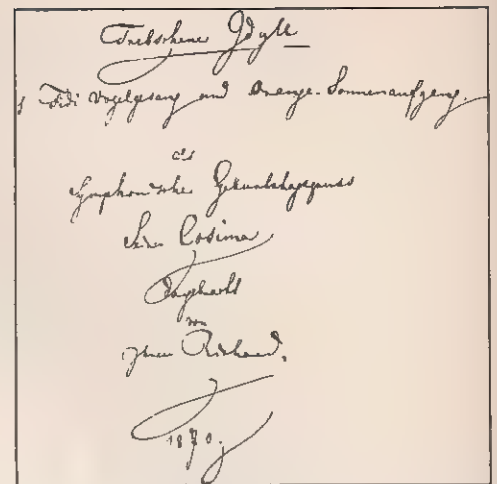 Tribschener Idyll
Fidi-Vogelgesang und Orange-Sonnenaufgang,
als
Symphonischer Geburtstagsgruss
Seiner Cosima
dargebracht
von
Ihrem Richard.
1870.